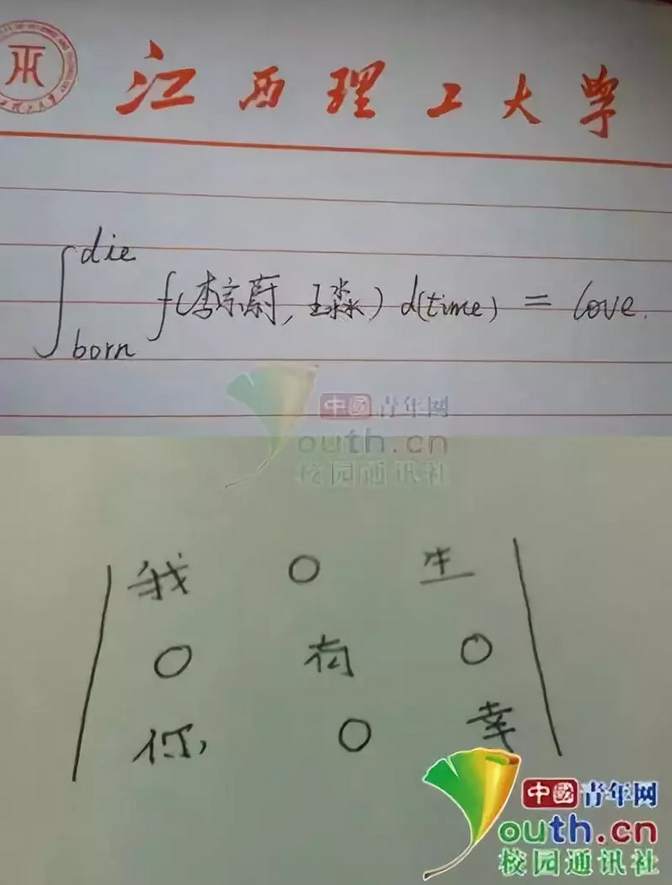 江西理工大学
∫_{born}^{die} f(李宗蔚, 王淼) d(time) = love.
中國青年网
outh.cn
校园通讯社
我 0 生
0 有 0
你, 0 幸
中國青年网
outh.cn
校园通讯社